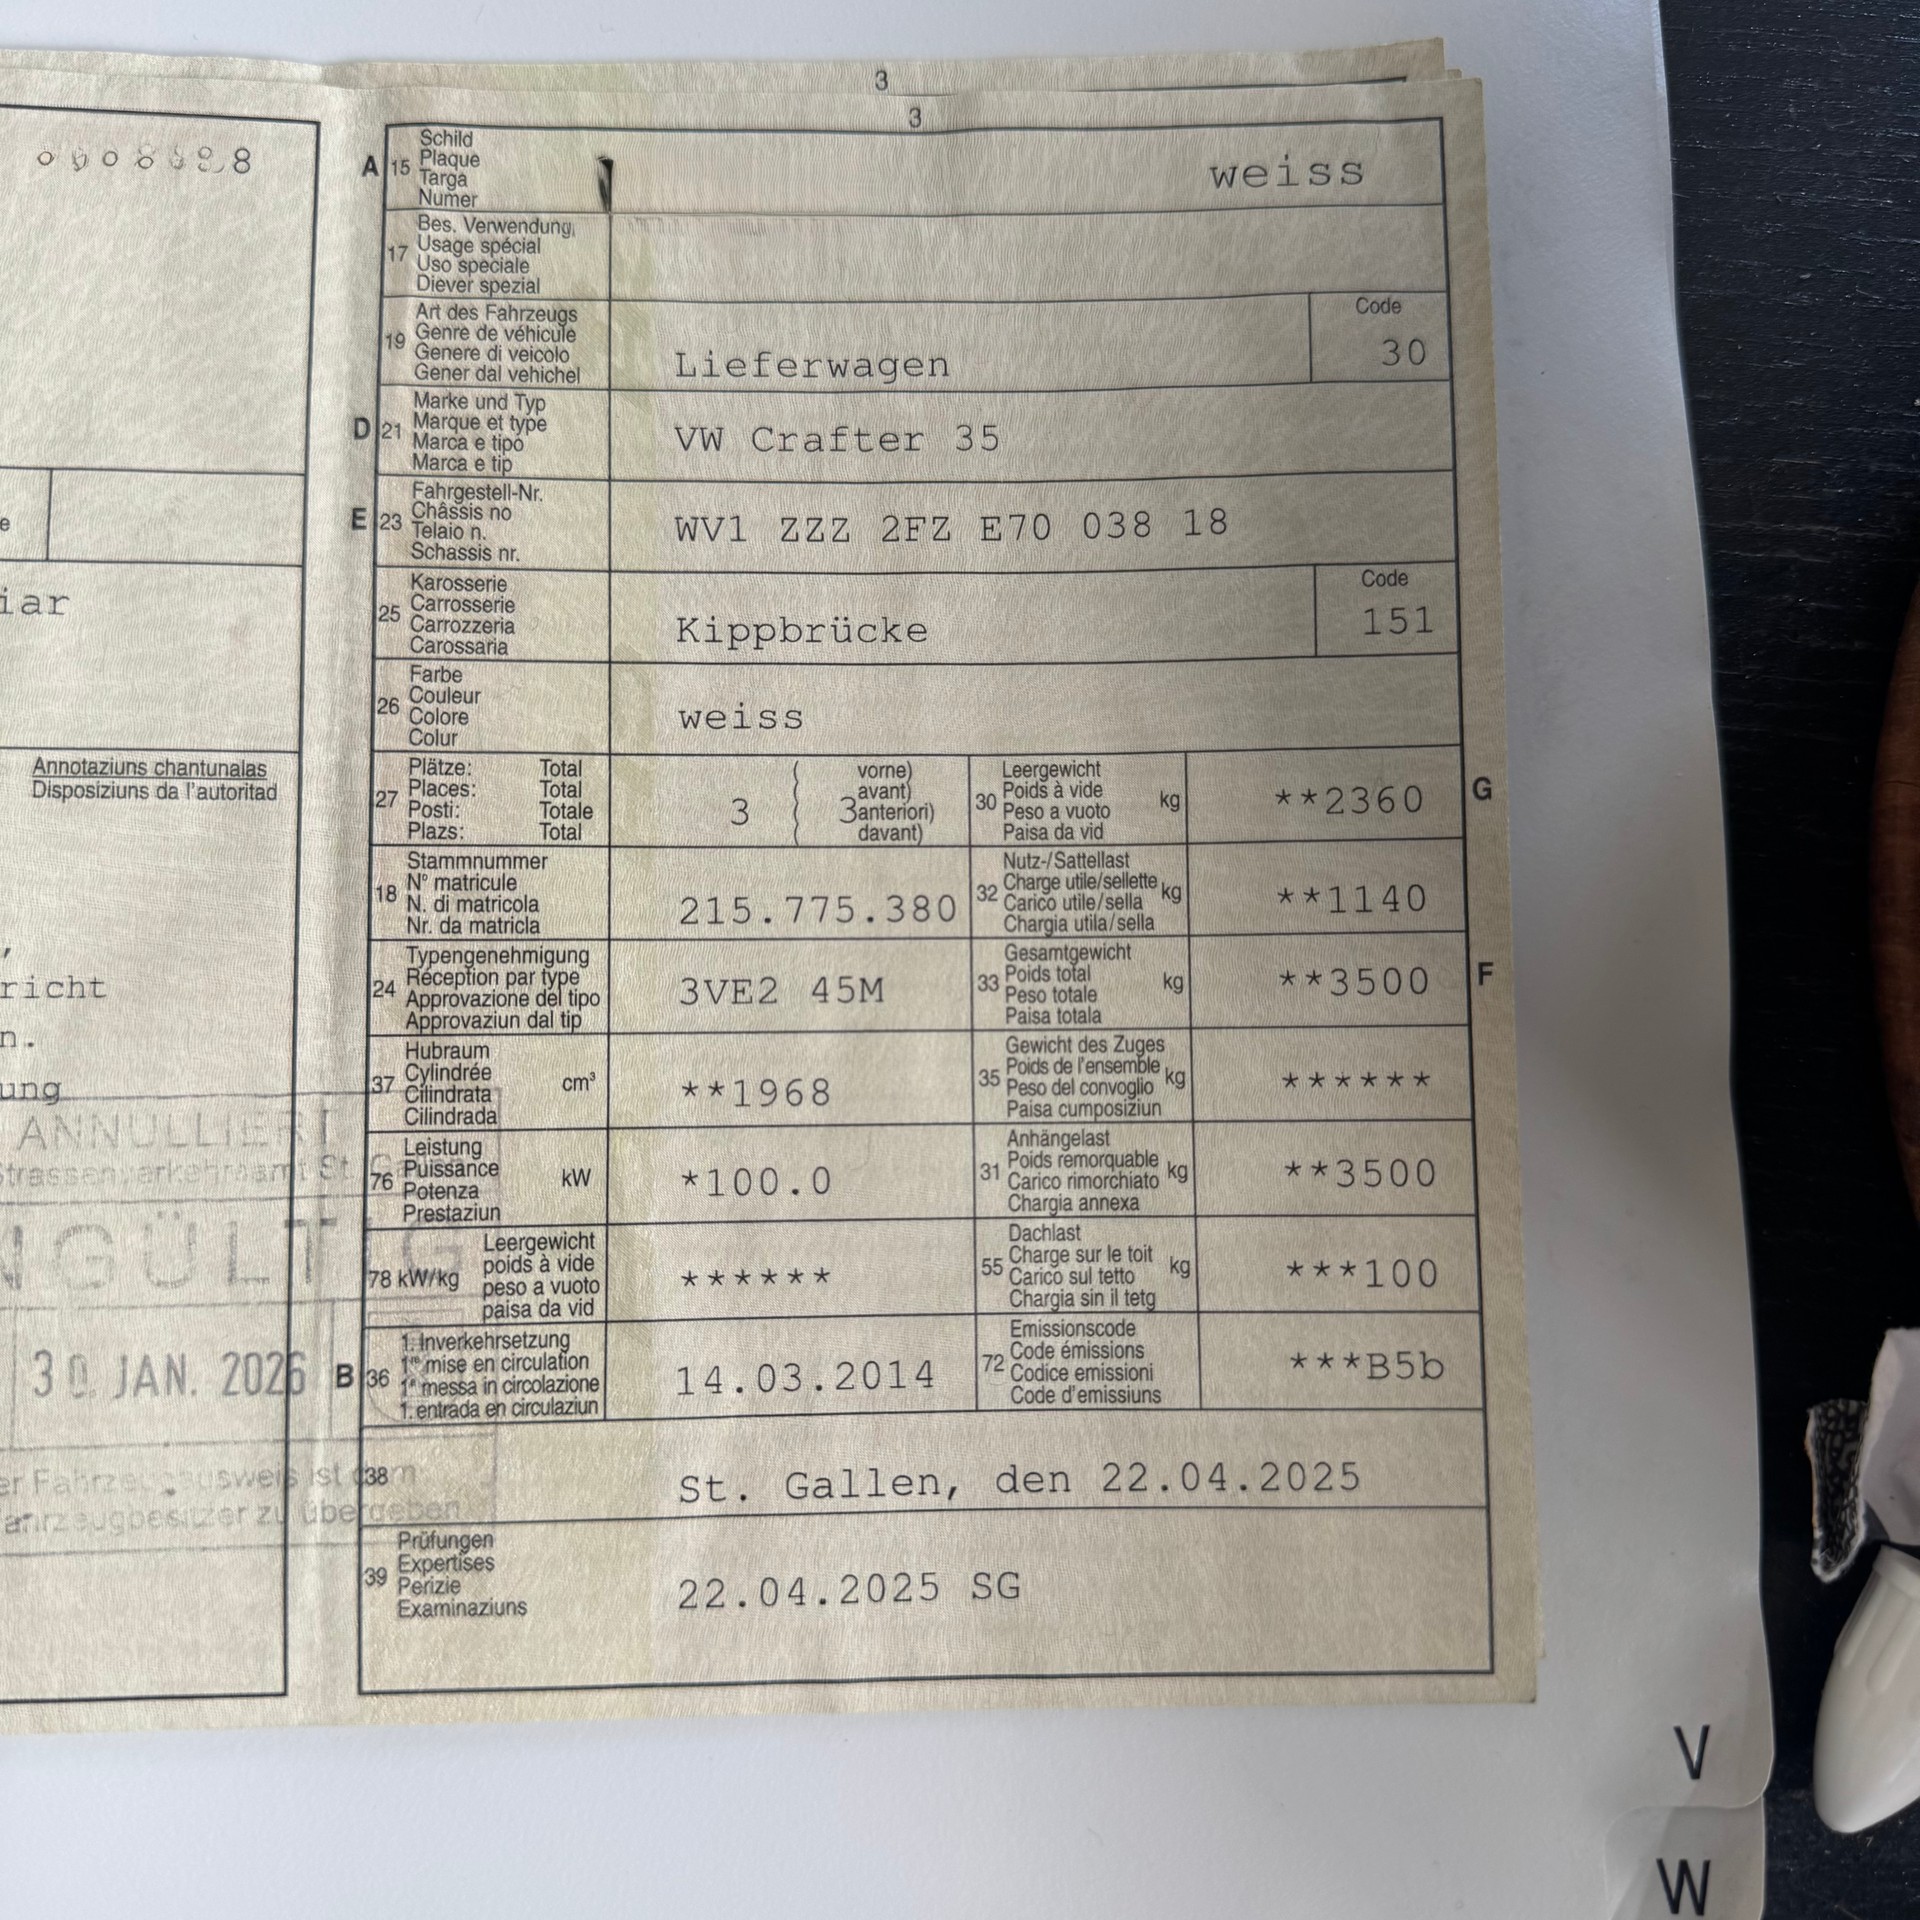 3
3
A 15 Schild
Plaque
Targa
Numer
weiss
17 Bes. Verwendung
Usage spécial
Uso speciale
Diever spezial
19 Art des Fahrzeugs
Genre de véhicule
Genere di veicolo
Gener dal vehichel
Lieferwagen
Code
30
D 21 Marke und Typ
Marque et type
Marca e tipo
Marca e tip
VW Crafter 35
E 23 Fahrgestell-Nr.
Châssis no
Telaio n.
Schassis nr.
WV1 ZZZ 2FZ E70 038 18
25 Karosserie
Carrosserie
Carrozzeria
Carossaria
Kippbrücke
Code
151
26 Farbe
Couleur
Colore
Colur
weiss
27 Plätze: Total
Places: Total
Posti: Totale
Plazs: Total
3 ( 3
vorne)
avant)
anteriori)
davant)
30 Leergewicht
Poids à vide
Peso a vuoto
Paisa da vid
kg
**2360
G
18 Stammnummer
N° matricule
N. di matricola
Nr. da matricla
215.775.380
32 Nutz-/Sattellast
Charge utile/sellette
Carico utile/sella
Chargia utila/sella
kg
**1140
24 Typengenehmigung
Réception par type
Approvazione del tipo
Approvaziun dal tip
3VE2 45M
33 Gesamtgewicht
Poids total
Peso totale
Paisa totala
kg
**3500
F
37 Hubraum
Cylindrée
Cilindrata
Cilindrada
cm³
**1968
35 Gewicht des Zuges
Poids de l'ensemble
Peso del convoglio
Paisa cumposiziun
kg
******
76 Leistung
Puissance
Potenza
Prestaziun
kW
*100.0
31 Anhängelast
Poids remorquable
Carico rimorchiato
Chargia annexa
kg
**3500
78 kW/kg
Leergewicht
poids à vide
peso a vuoto
paisa da vid
******
55 Dachlast
Charge sur le toit
Carico sul tetto
Chargia sin il tetg
kg
***100
B 36 1. Inverkehrsetzung
1re mise en circulation
1a messa in circolazione
1. entrada en circulaziun
14.03.2014
72 Emissionscode
Code émissions
Codice emissioni
Code d'emissiuns
***B5b
38
St. Gallen, den 22.04.2025
39 Prüfungen
Expertises
Perizie
Examinaziuns
22.04.2025 SG
e
iar
Annotaziuns chantunalas
Disposiziuns da l'autoritad
,
richt
n.
ung
ANNULLIERT
Strassenverkehrsamt St.
NGÜLTIG
30. JAN. 2026
er Fahrzeugausweis ist dem
ahrzeugbesitzer zu übergeben
V
W